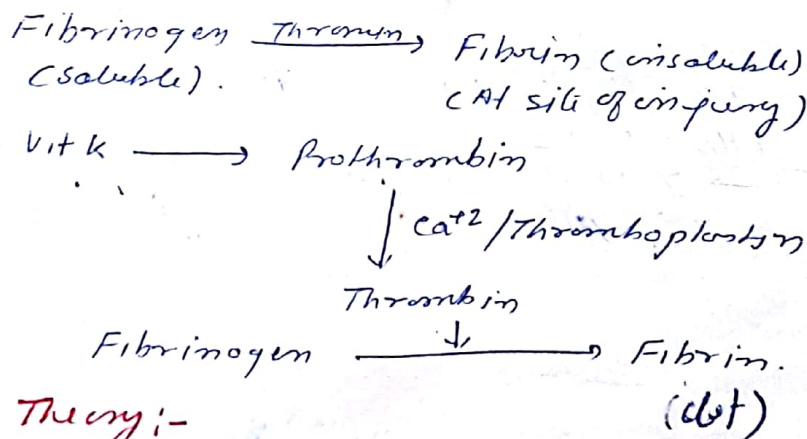 Fibrinogen Thrombin → Fibrin (insoluble)
(soluble). (At site of injury)
Vit K → Prothrombin
↓ Ca+2 / Thromboplastin
Thrombin
↓
Fibrinogen → Fibrin.
Theory :- (clot)